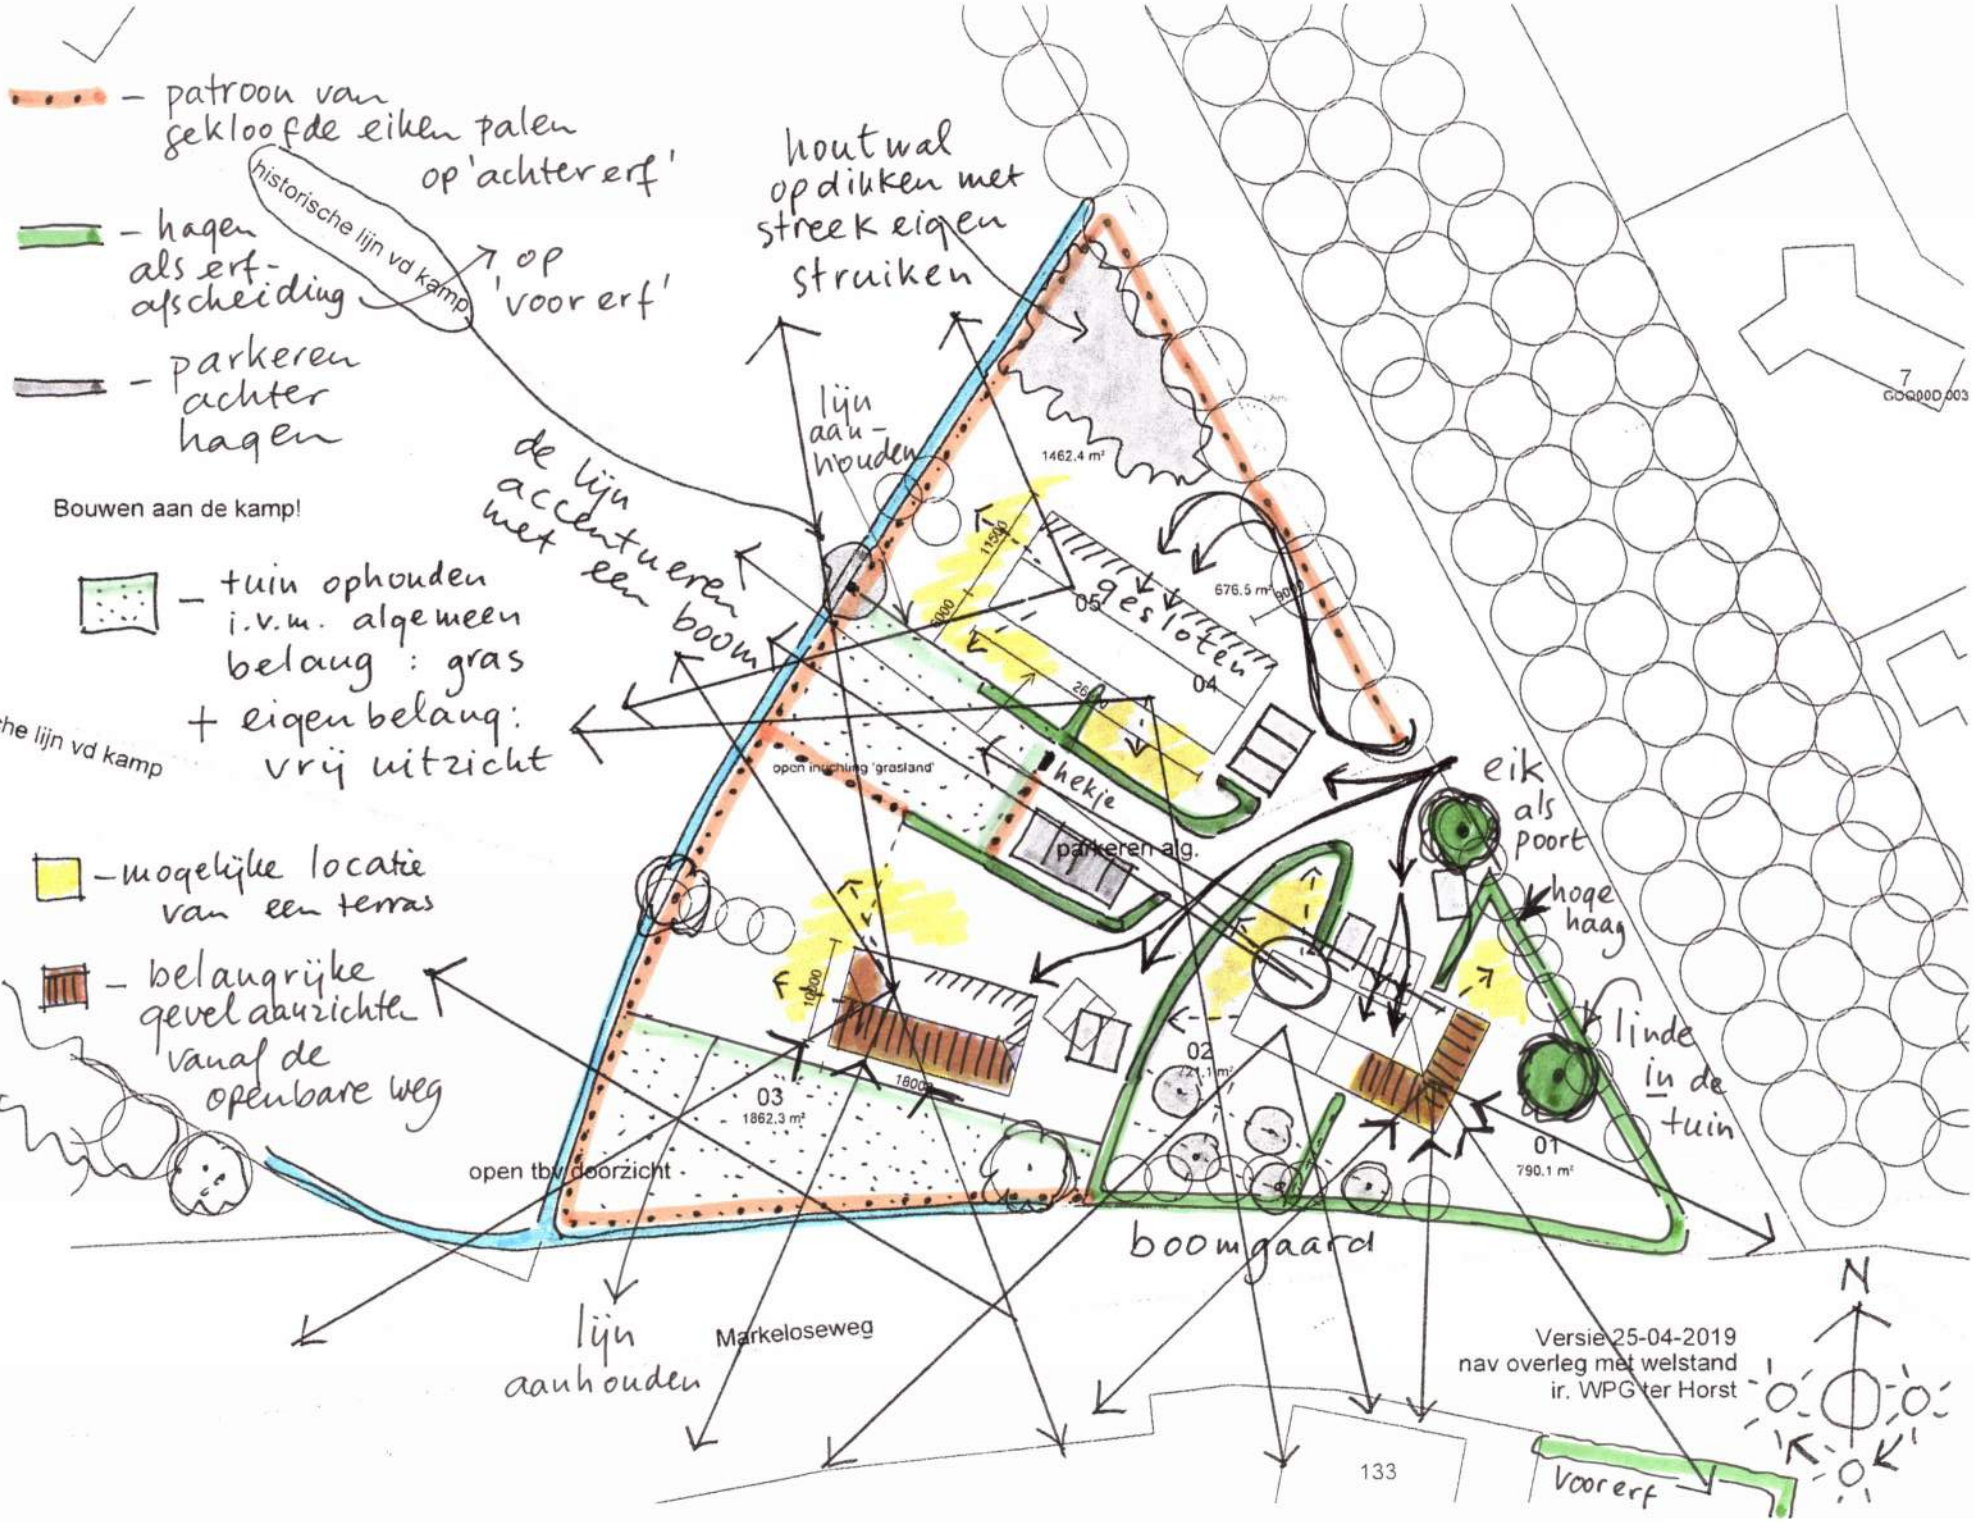 - patroon van
gekloofde eiken palen
op 'achter erf'
historische lijn vd kamp
- hagen
als erf-
afscheiding
op
'voor erf'
- parkeren
achter
hagen
Bouwen aan de kamp!
- tuin ophouden
i.v.m. algemeen
belang : gras
+ eigen belang:
vrij uitzicht
he lijn vd kamp
- mogelijke locatie
van een terras
- belangrijke
gevelaanzichten
vanaf de
openbare weg
houtwal
opdikken met
streekeigen
struiken
lijn
aan-
houden
de lijn
accentueren
met een
boom
1462.4 m²
11500
5000
05
gesloten
676.5 m²
9000
04
open inrichting 'grasland'
hekje
parkeren alg.
eik
als
poort
hoge
haag
linde
in de
tuin
02
01
790.1 m²
18000
03
1862.3 m²
open tbv doorzicht
boomgaard
lijn
aanhouden
Markeloseweg
7
133
Versie 25-04-2019
nav overleg met welstand
ir. WPG ter Horst
N
Voorerf